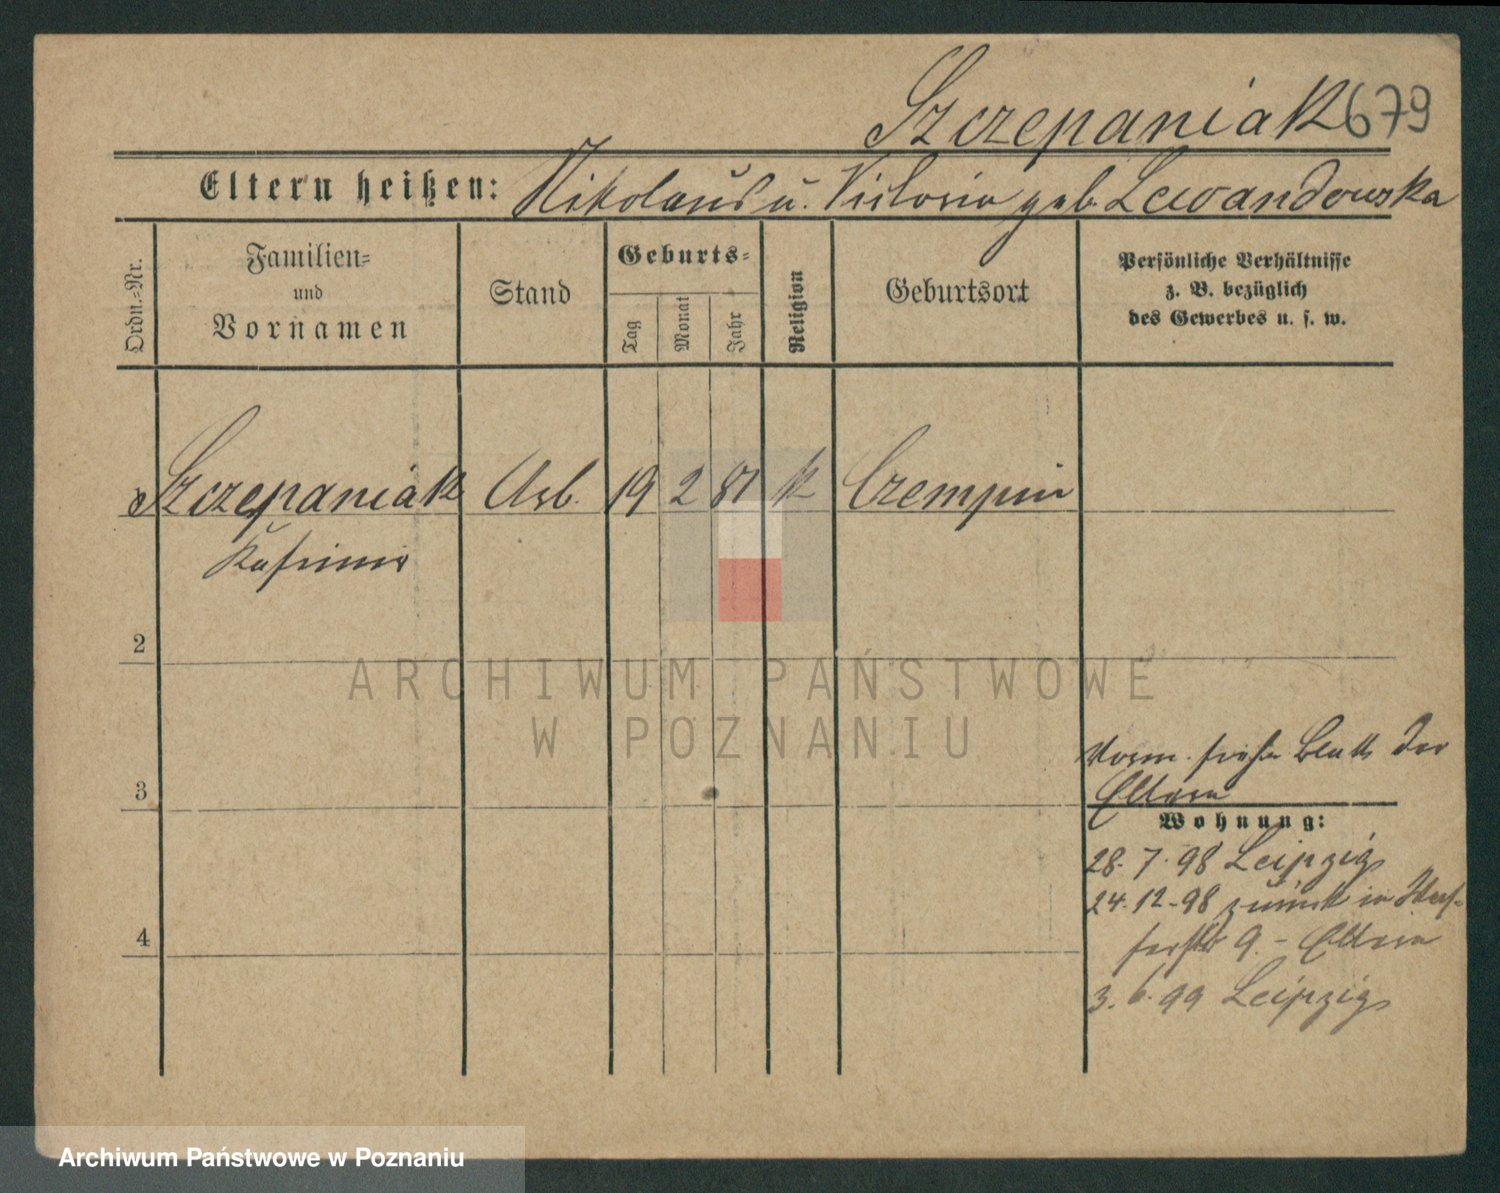 Szczepaniak 679
Eltern heißen: Nikolaus u. Victoria geb. Lewandowska
Ordn.-Nr.
Familien-
und
Vornamen
Stand
Geburts-
Tag
Monat
Jahr
Religion
Geburtsort
Persönliche Verhältnisse
z. B. bezüglich
des Gewerbes u. s. w.
Szczepaniak Arb. 19 2 81 k Czempin
Kasimir
2
ARCHIWUM PAŃSTWOWE
W POZNANIU
3
4
Vorm. siehe Blatt der
Eltern
Wohnung:
28. 7. 98 Leipzig
24. 12. 98 zurück in
9. - Eltern
3. 6. 99 Leipzig
Archiwum Państwowe w Poznaniu